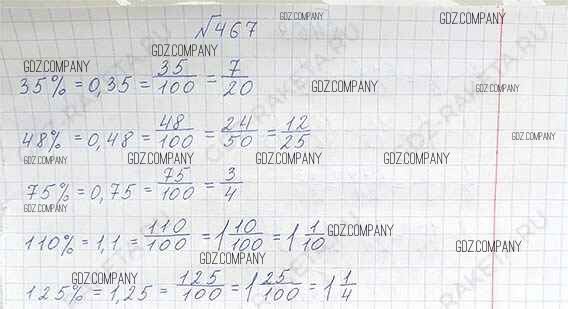 №467 GDZ.COMPANY GDZ.COMPANY
GDZ.COMPANY
GDZ.COMPANY
35% = 0,35 = 35/100 = 7/20 GDZ.COMPANY GDZ.COMPANY
48% = 0,48 = 48/100 = 24/50 = 12/25 GDZ.COMPANY
GDZ.COMPANY GDZ.COMPANY GDZ.COMPANY GDZ.COMPANY
75% = 0,75 = 75/100 = 3/4
GDZ.COMPANY
110% = 1,1 = 110/100 = 1 10/100 = 1 1/10 GDZ.COMPANY GDZ.COMPANY
GDZ.COMPANY
GDZ.COMPANY
125% = 1,25 = 125/100 = 1 25/100 = 1 1/4
GDZ-RAKETA.RU